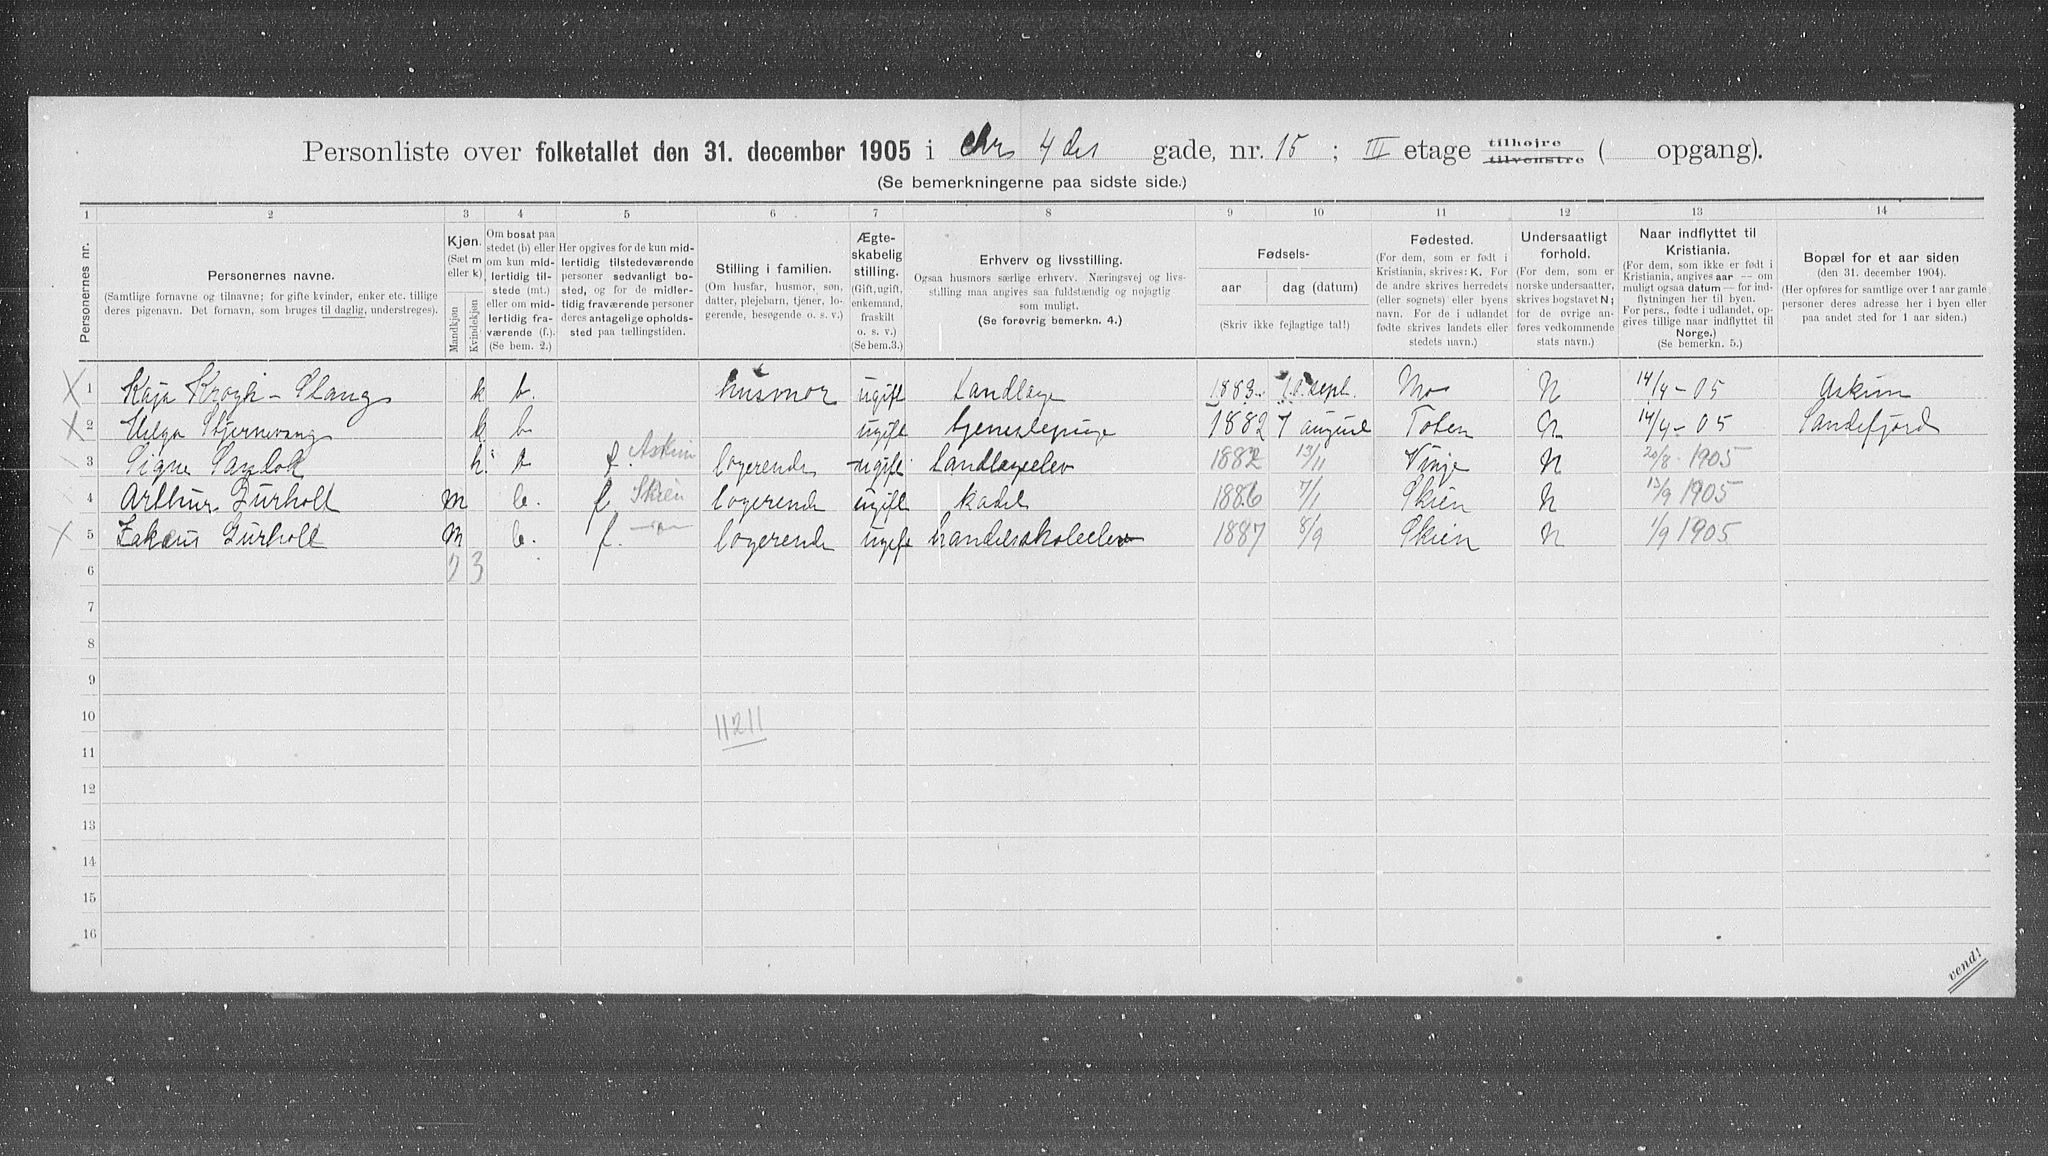 Personliste over folketallet den 31. december 1905 i Chrs 4 des gade, nr. 15 ; III etage tilhøjre tilvenstre ( opgang).
(Se bemerkningerne paa sidste side.)
1 2 3 4 5 6 7 8 9 10 11 12 13 14
Personernes nr.
Personernes navne.
(Samtlige fornavne og tilnavne; for gifte kvinder, enker etc. tillige
deres pigenavn. Det fornavn, som bruges til daglig, understreges).
Kjøn.
(Sæt m
eller k)
Mandkjøn
Kvindekjøn
Om bosat paa
stedet (b) eller
om kun mid-
lertidig til-
stede (mt.)
eller om mid-
lertidig fra-
værende (f.).
(Se bem. 2.)
Her opgives for de kun mid-
lertidig tilstedeværende
personer sedvanligt bo-
sted, og for de midler-
tidig fraværende personer
deres antagelige opholds-
sted paa tællingstiden.
Stilling i familien.
(Om husfar, husmor, søn,
datter, plejebarn, tjener, lo-
gerende, besøgende o. s. v.)
Ægte-
skabelig
stilling.
(Gift, ugift,
enkemand,
fraskilt
o. s. v.)
(Se bem.3.)
Erhverv og livsstilling.
Ogsaa husmors særlige erhverv. Næringsvej og livs-
stilling maa angives saa fuldstændig og nøjagtig
som muligt.
(Se forøvrig bemerkn. 4.)
Fødsels-
aar dag (datum)
(Skriv ikke fejlagtige tal!)
Fødested.
(For dem, som er født i
Kristiania, skrives: K. For
de andre skrives herredets
(eller sognets) eller byens
navn. For de i udlandet
fødte skrives landets eller
stedets navn.)
Undersaatligt
forhold.
(For dem, som er
norske undersaatter,
skrives bogstavet N;
for de øvrige an-
føres vedkommende
stats navn.)
Naar indflyttet til
Kristiania.
(For dem, som ikke er født i
Kristiania, angives aar — om
muligt ogsaa datum — for ind-
flytningen her til byen.
For pers., fødte i udlandet, op-
gives tillige naar indflyttet til
Norge.)
(Se bemerkn. 5.)
Bopæl for et aar siden
(den 31. december 1904).
(Her opføres for samtlige over 1 aar gamle
personer deres adresse her i byen eller
paa andet sted for 1 aar siden.)
1 Kaja Krogh-Stang k b. husmor ugift tandlæge 1883 10 sept. Mo N 14/4-05 Askim
2 Helga Stjernevang k b ugift tjenestepige 1882 7 august Toten N 14/4-05 Sandefjord
3 Signe Sandok k b f. Askim logerende ugift tandlægeelev 1882 13/11 Vinje N 20/8-1905
4 Arthur Durholt m b. f. Skien logerende ugift kadet 1886 7/1 Skien N 13/9 1905
5 Durholt m b. f. logerende ugift handelsskoleelev 1887 8/9 Skien N 1/9 1905
6 2 3
7
8
9
10 11211
11
12
13
14
15
16
vend!